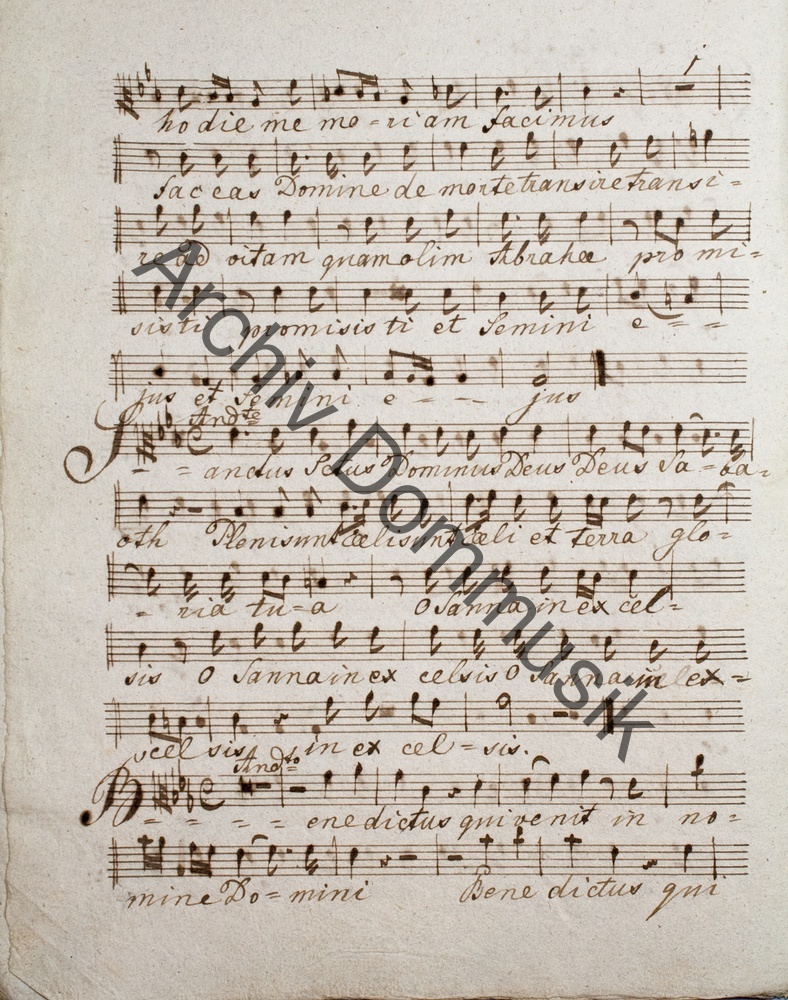 1
ho die me mo = ri am facimus
fac eas Domine de morte transire transi =
re ad vitam quam olim Abrahæ pro mi =
sisti promisisti et Semini e = =
jus et Semini e - - - jus
And.te
S = = anctus Sctus Dominus Deus Deus Sa = ba =
oth Pleni sunt cæli sunt cæli et terra glo =
- ria tu = a O Sanna in ex cel =
sis O Sanna in ex celsis O Sanna in ex =
scel sis in ex cel = sis.
And.te
B = = = = ene dictus qui venit in no =
mine Do = mini Bene dictus qui
Archiv Dommusik